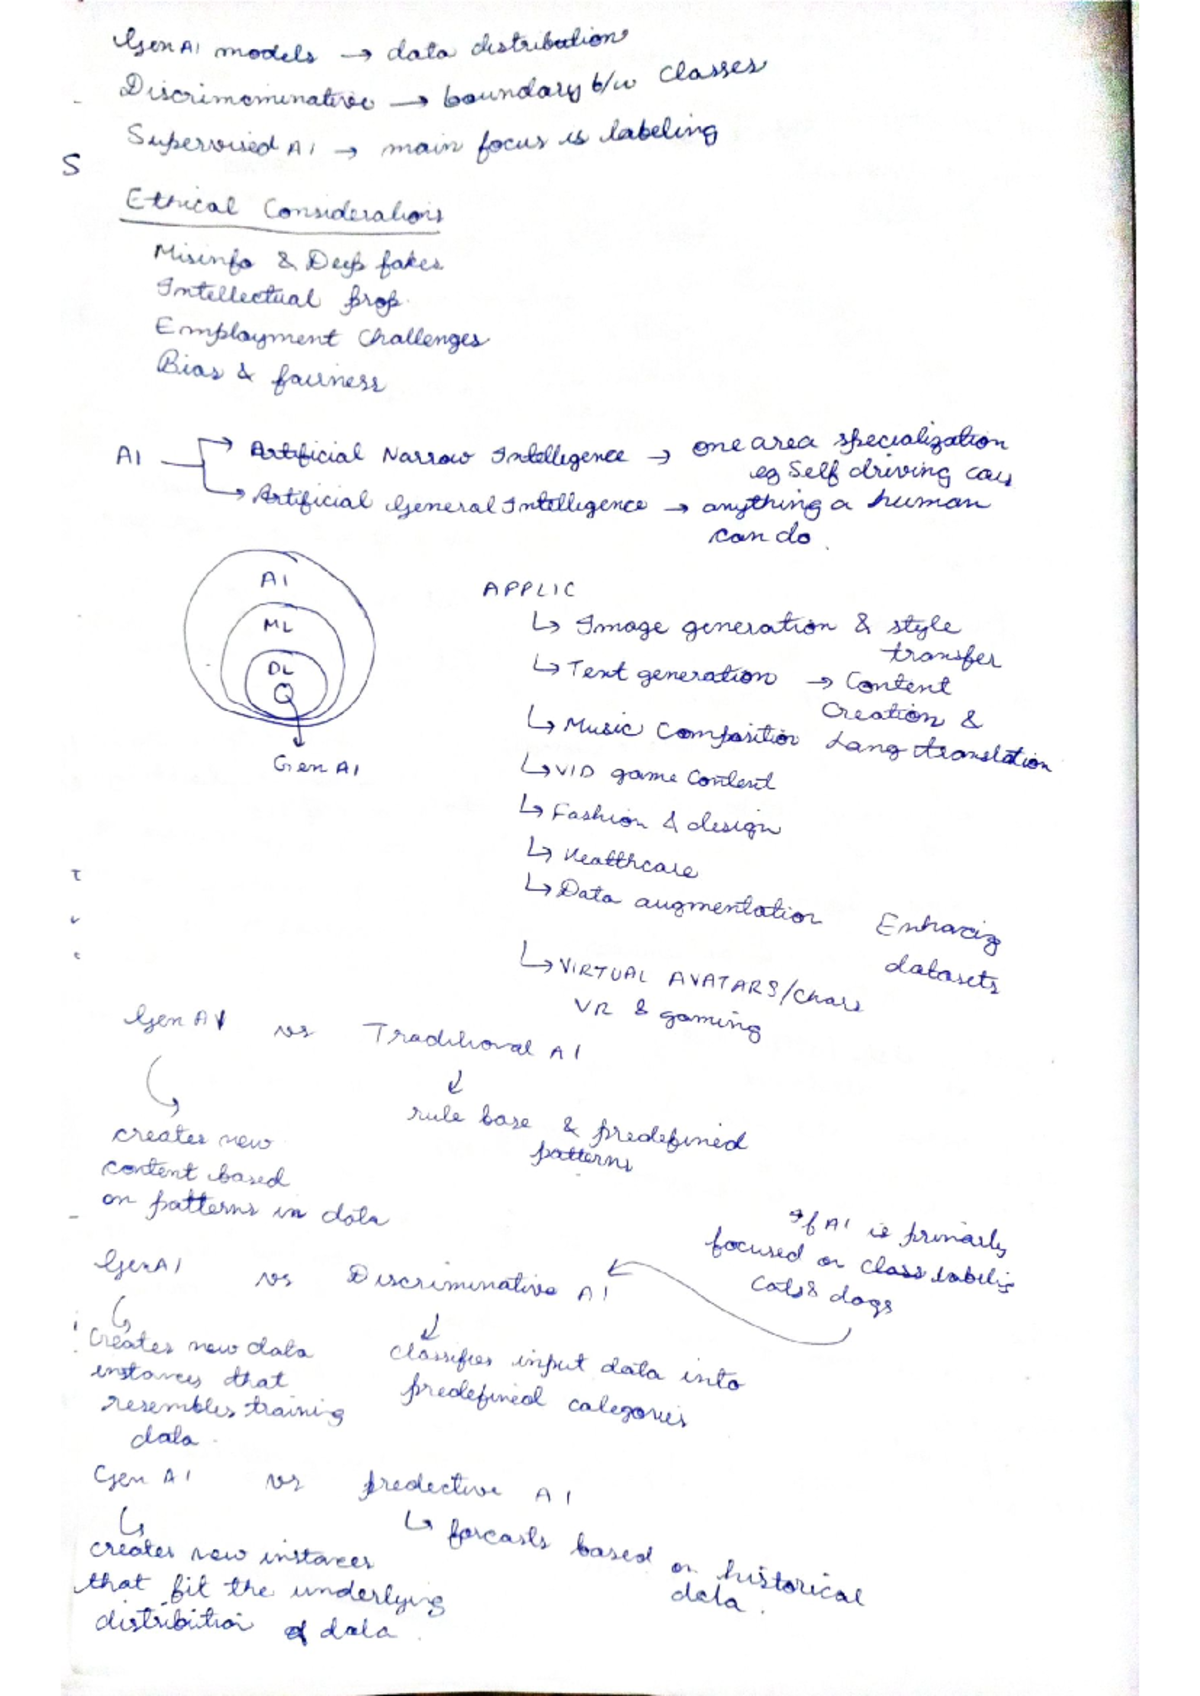 GenAI models → data distribution
Discrimeminative → boundary b/w classes
Supervised AI → main focus is labeling
S
Ethical Considerations
Misinfo & Deep fakes
Intellectual prop.
Employment Challenges
Bias & fairness
AI
→ Artificial Narrow Intelligence → one area specialization
eg Self driving cars
→ Artificial General Intelligence → anything a human
can do.
AI
ML
DL
Gen AI
APPLIC
↳ Image generation & style
transfer
↳ Text generation → Content
Creation &
Lang translation
↳ Music Composition
↳ VID game Content
↳ Fashion & design
↳ Healthcare
↳ Data augmentation Enhancing
datasets
↳ VIRTUAL AVATARS/Chars
VR & gaming
Gen AI vs Traditional AI
rule base & predefined
patterns
creates new
content based
on patterns in data
If AI is primarily
focused on class labeling
Cats & dogs
GenAI vs Discriminative AI
Creates new data
instances that
resembles training
data.
classifies input data into
predefined categories
Gen AI vs predective AI
↳ forcasts based on historical
data.
creates new instances
that fit the underlying
distribution of data.